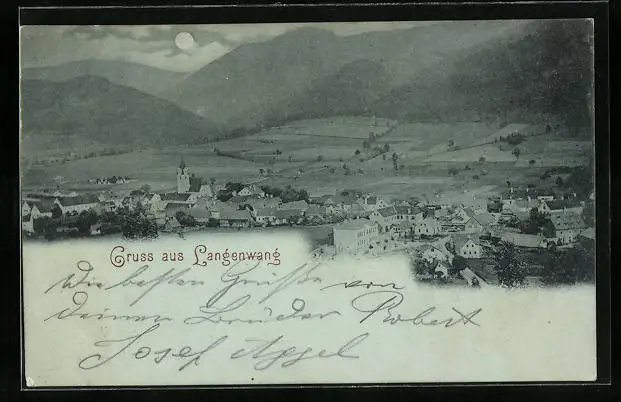 Gruss aus Langenwang
Die besten Grüße von
Deinen Brüder Robert
Josef